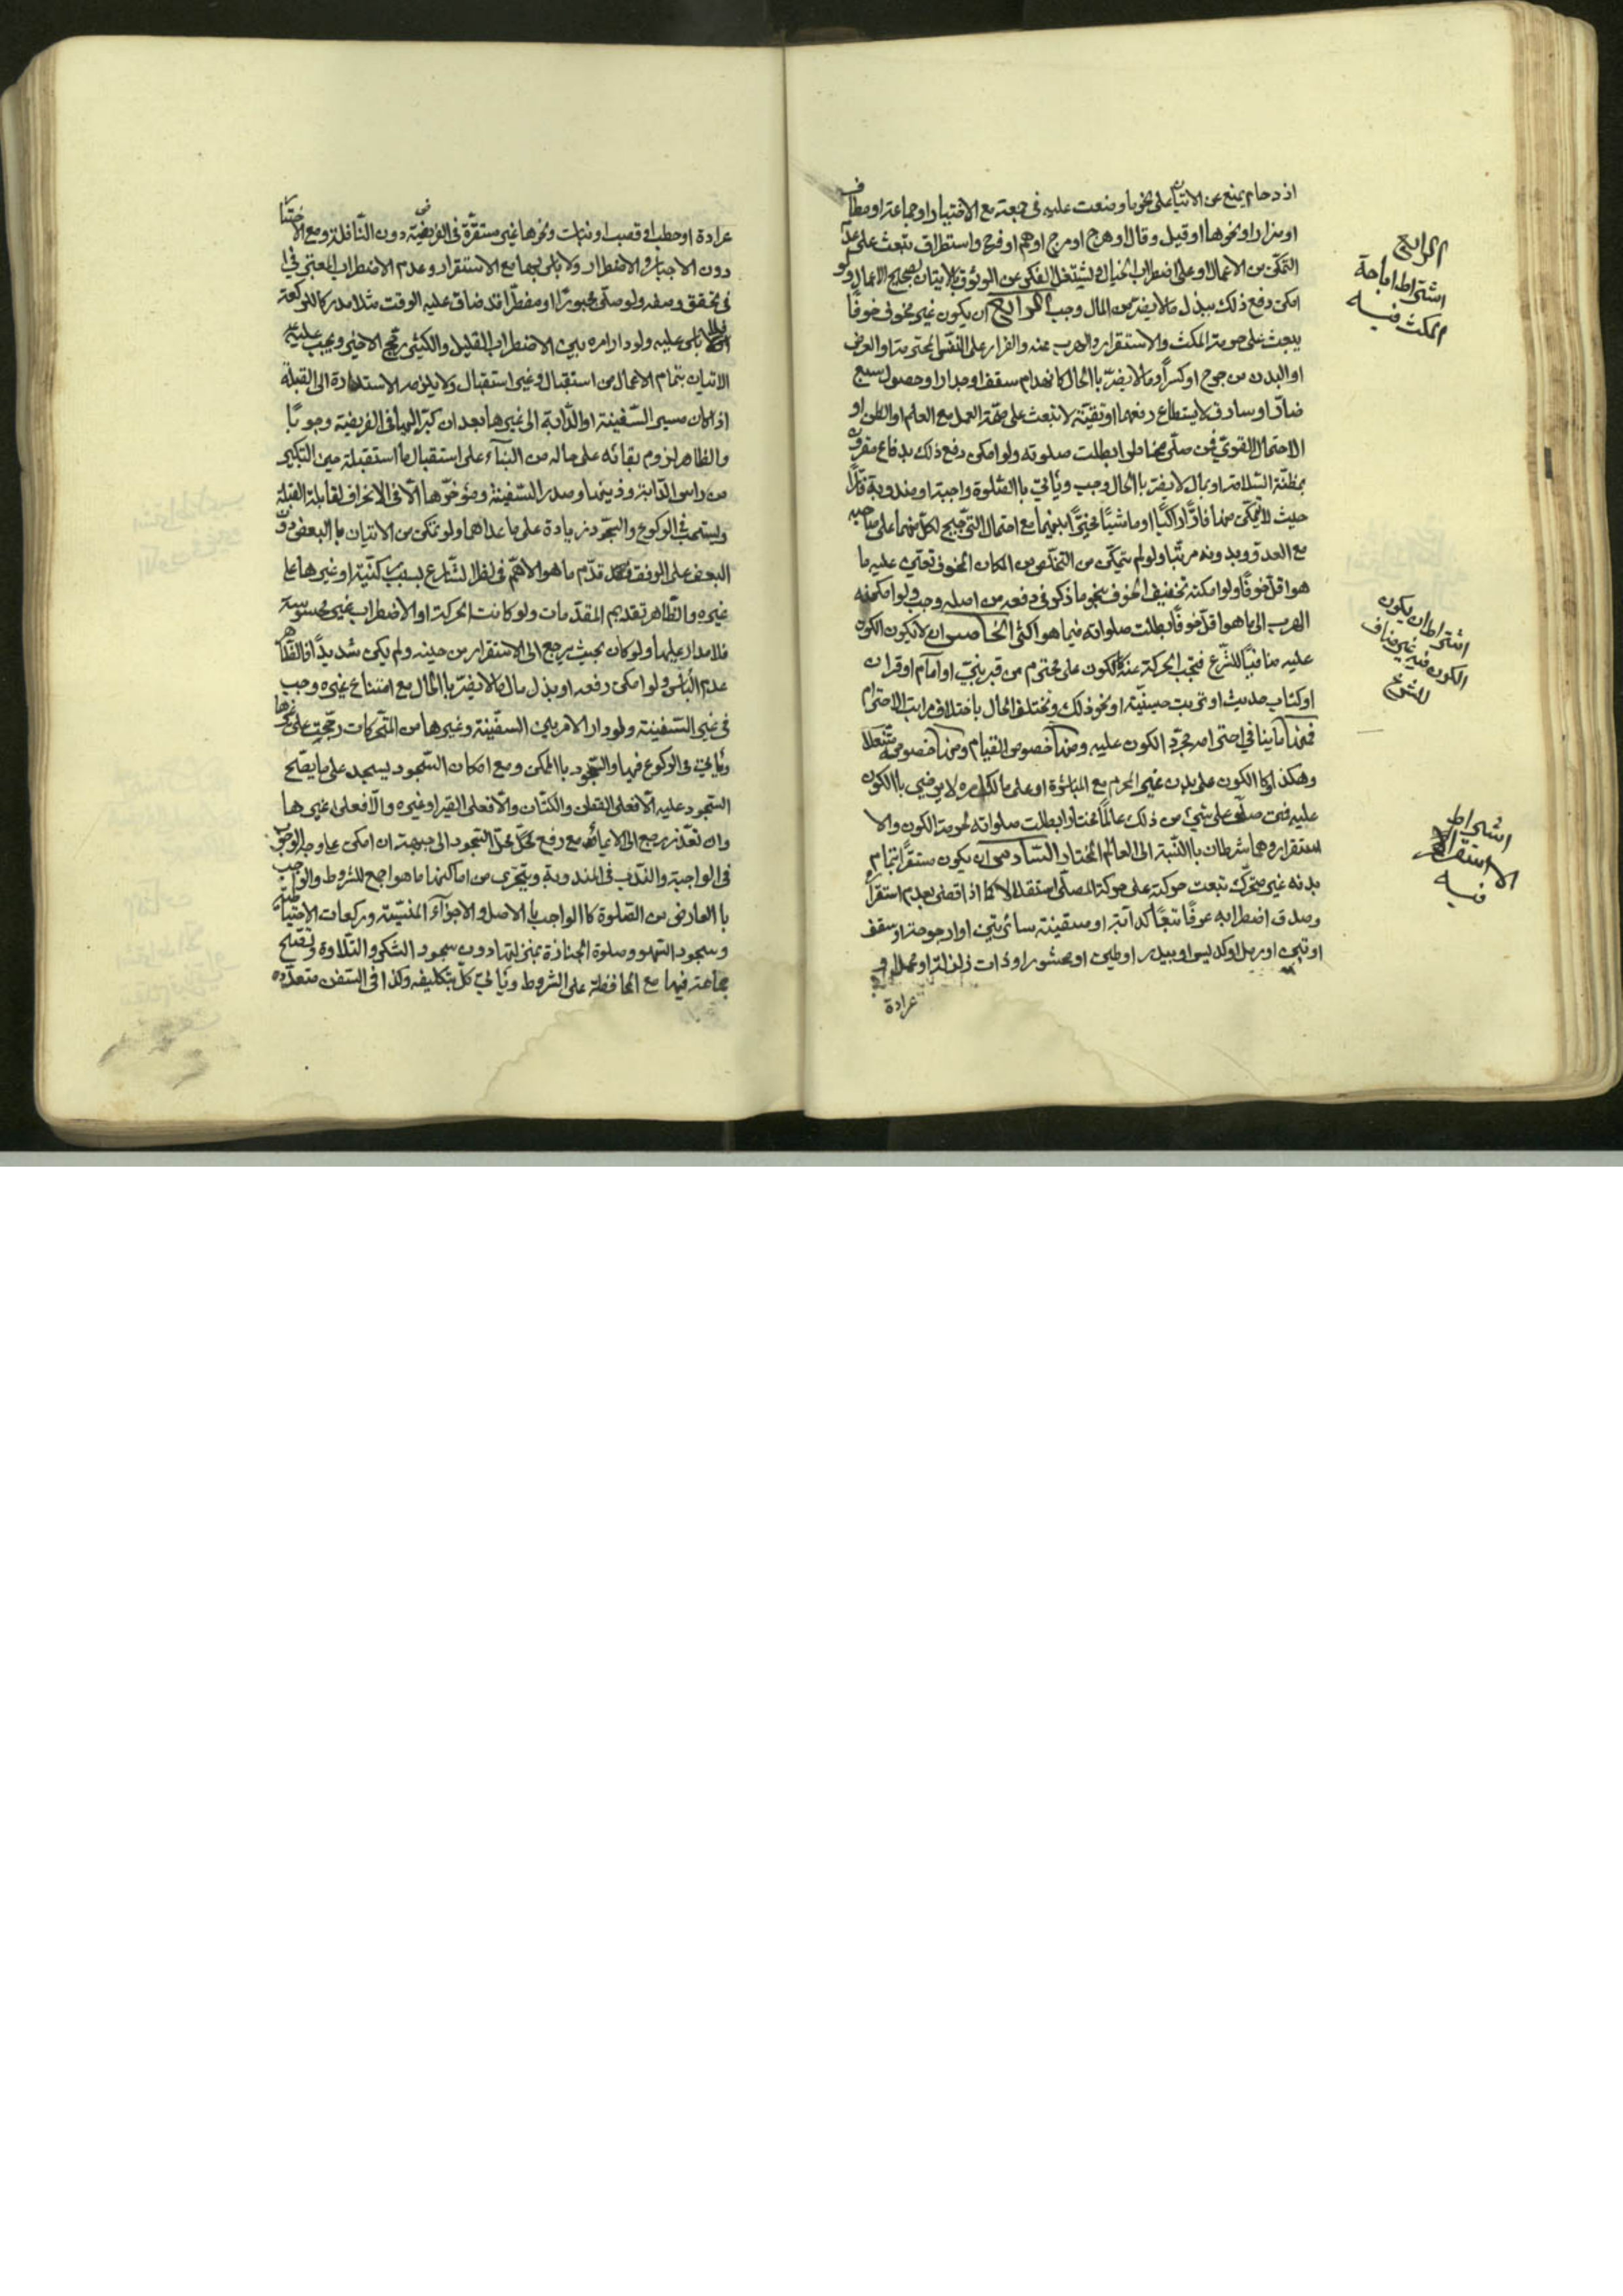 اذدحام يمنع عن الاتيان على نحو ما وضعت عليه في جمعة مع الاختيار او جماعة او مطاف
او مزار او نحوها او قيل وقال او هرج او مرج او هم او فرح واستطراق تبعث على عدم
التمكن من الاعمال او على اضطراب الخيال ويشتغل الفكر عن الوثوق بالاتيان بصحيح الاعمال ولو
امكن دفع ذلك ببذل ما لا يضر من المال وجب الرابع ان يكون غير مخوف خوفًا
يبعث على حرمة المكث والاستقرار والهرب عنه والفرار على النفس المحترمة او العرض
او البدن من جرح او كسر او ما لا يضر باالحال كانهدام سقف او جدار او حصول سبع
ضار او سارق لا يستطاع دفعهما او تقية لا تبعث على صحة العمل مع العلم او الظن او
الاحتمال القوي فمن صلى مخاطرا بطلت صلوته ولو امكن دفع ذلك بدفاع مقرون
بمظنة السلامة او بمال لا يضر باالحال وجب وياتي باالصلوة واجبة او مندوبة فارا
حيث لا يتمكن منها قارا راكبًا او ماشيًا مخيرًا بينهما مع احتمال الترجيح لكل منهما على صاحبه
مع العدو وبدونه مرتبا ولو لم يتمكن من التخلص من المكان المخوف تعين عليه ما
هو اقل خوفًا ولو امكنه تخفيف الخوف بنحو ما ذكر في دفعه من اصله وجب ولو امكنه
الهرب الى ما هو اقل خوفًا بطلت صلواته فيما هو اكثر الخامس ان لا يكون الكون
عليه منافيًا للشرع فتجب الحركة عنه كالكون على محترم من قبر نبي او امام او قران
او كتاب حديث او تربت حسينية او نحو ذلك وتختلف الحال باختلاف مراتب الاحترام
فمنها ما ينافي احترامه مجرد الكون عليه ومنها خصوص القيام ومنها خصوصه متنعلا
وهكذا وكا الكون على بدن غير المحرم مع المباشرة او على ما لكامره لا يرضى باالكون
عليه فمن صلى على شيئ من ذلك عالمًا مختارا بطلت صلواته لحرمة الكون والا
ستقرار وهما شرطان باالنسبة الى العالم المختار السادس ان يكون مستقرًا بتمام
بدنه غير متحرك تبعت حركته على حركة المصلي استقلالا كما اذا قضى بعدم استقراره
وصدق اضطرابه عرفًا تبعًا كدآبة او سفينة سائرتين او ارجوحة او سقف
او تبن او رمل او كديس او بيدر او طين او محشور او ذات زلزلة او محمل او
عرادة
الرابع
اشتراط اباحة
المكث فيه
اشتراط ان يكون
الكون فيه غير مناف
للشرع
اشتراط
الاستقرار
فيه
عرادة او حطب او قصب او نبات ونحوها غير مستقرة في الفريضة دون النافلة ومع الاختيار
دون الاجبار والاضطرار ولا باس بهما مع الاستقرار وعدم الاضطراب المعتبر في
في تحقق وصفه ولو صلى مجبورًا او مضطرا قد ضاق عليه الوقت مثلا مدركا لركعة
فلا باس عليه ولو دار امره بين الاضطراب القليل والكثير رجح الاخير ويجب عليه
الاتيان بتمام الاعمال من استقبال وغير استقبال ولا يلزمه الاستدارة الى القبلة
اذا كان مسير السفينة او الدابة الى غيرها بعد ان كبر اليها في الفريضة وجوبًا
والظاهر لزوم بقائه على حاله من البنآء على استقبال ما استقبله حين التكبير
من راس الدابة وذنبها وصدر السفينة ومؤخرها الا في الانحراف لمقابلة القبلة
ويستحب في الركوع والسجود زيادة على ما عداهما ولو تمكن من الاتيان باالبعض دون
البعض على الوفق قدم ما هو الاهم في نظر الشارع بسبب ركنية او غيرها على
غيره والظاهر تقديم المقدمات ولو كانت الحركة او الاضطراب غير محسوسة
فلا مدار عليها ولو كان بحيث يرجع الى الاستقرار من حينه ولم يكن شديدًا فالظاهر
عدم الباس ولو امكن رفعه او بذل مال ما لا يضر باالحال مع امتناع غيره وجب
في غير السفينة ولو دار الامر بين السفينة وغيرها من المتحركات رجحت على غيرها
وياتي في الركوع فيها والسجود باالممكن ومع امكان السجود يسجد على ما يصلح
السجود عليه الا فعلى القطن والكتان والا فعلى القير او غيره والا فعلى غيرها
وان تعذر رجع الى الايماء مع رفع محل السجود الى جبهته ان امكن على وجه الوجوب
في الواجبة والندب في المندوبة ويتحرى من اماكنها ما هو اجمع للشروط والواجب
باالعارض من الصلوة كاالواجب باالاصل والاجزآء المنسية وركعات الاحتياطية
وسجود السهو وصلوة الجنازة بمنزلتها دون سجود الشكر والتلاوة وتصلح
جماعة فيها مع المحافظة على الشروط وياتي كل بتكليفه وكذا في السفن متعدده